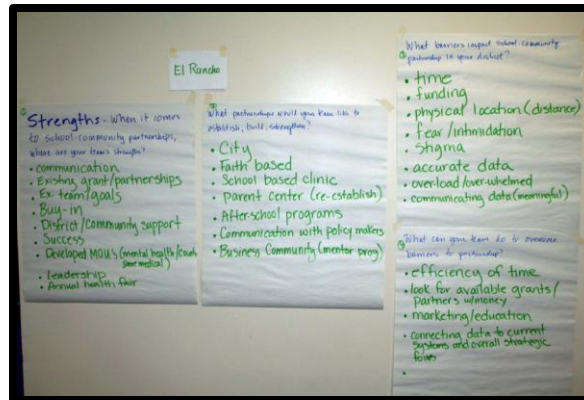 El Rancho
Strengths - When it comes
to school-community partnerships,
where are your team's strengths?
• communication
• Existing grant/partnerships
• Ex. team/goals
• Buy-in
• District/Community support
• Success
• Developed MOU's (mental health/
medical)
• Leadership
• Annual health fair
What partnerships would your team like to
establish, build, strengthen?
• City
• Faith based
• School based clinic
• Parent Center (re-establish)
• After-school programs
• Communication with policy makers
• Business Community (mentor prog)
What barriers impact school-community
partnership in your district?
• time
• funding
• physical location (distance)
• fear/intimidation
• Stigma
• accurate data
• overload/over-whelmed
• communicating data (meaningful)
What can your team do to overcome
barriers to partnership?
• efficiency of time
• look for available grants/
partners w/money
• marketing/education
• connecting data to current
systems and overall strategic